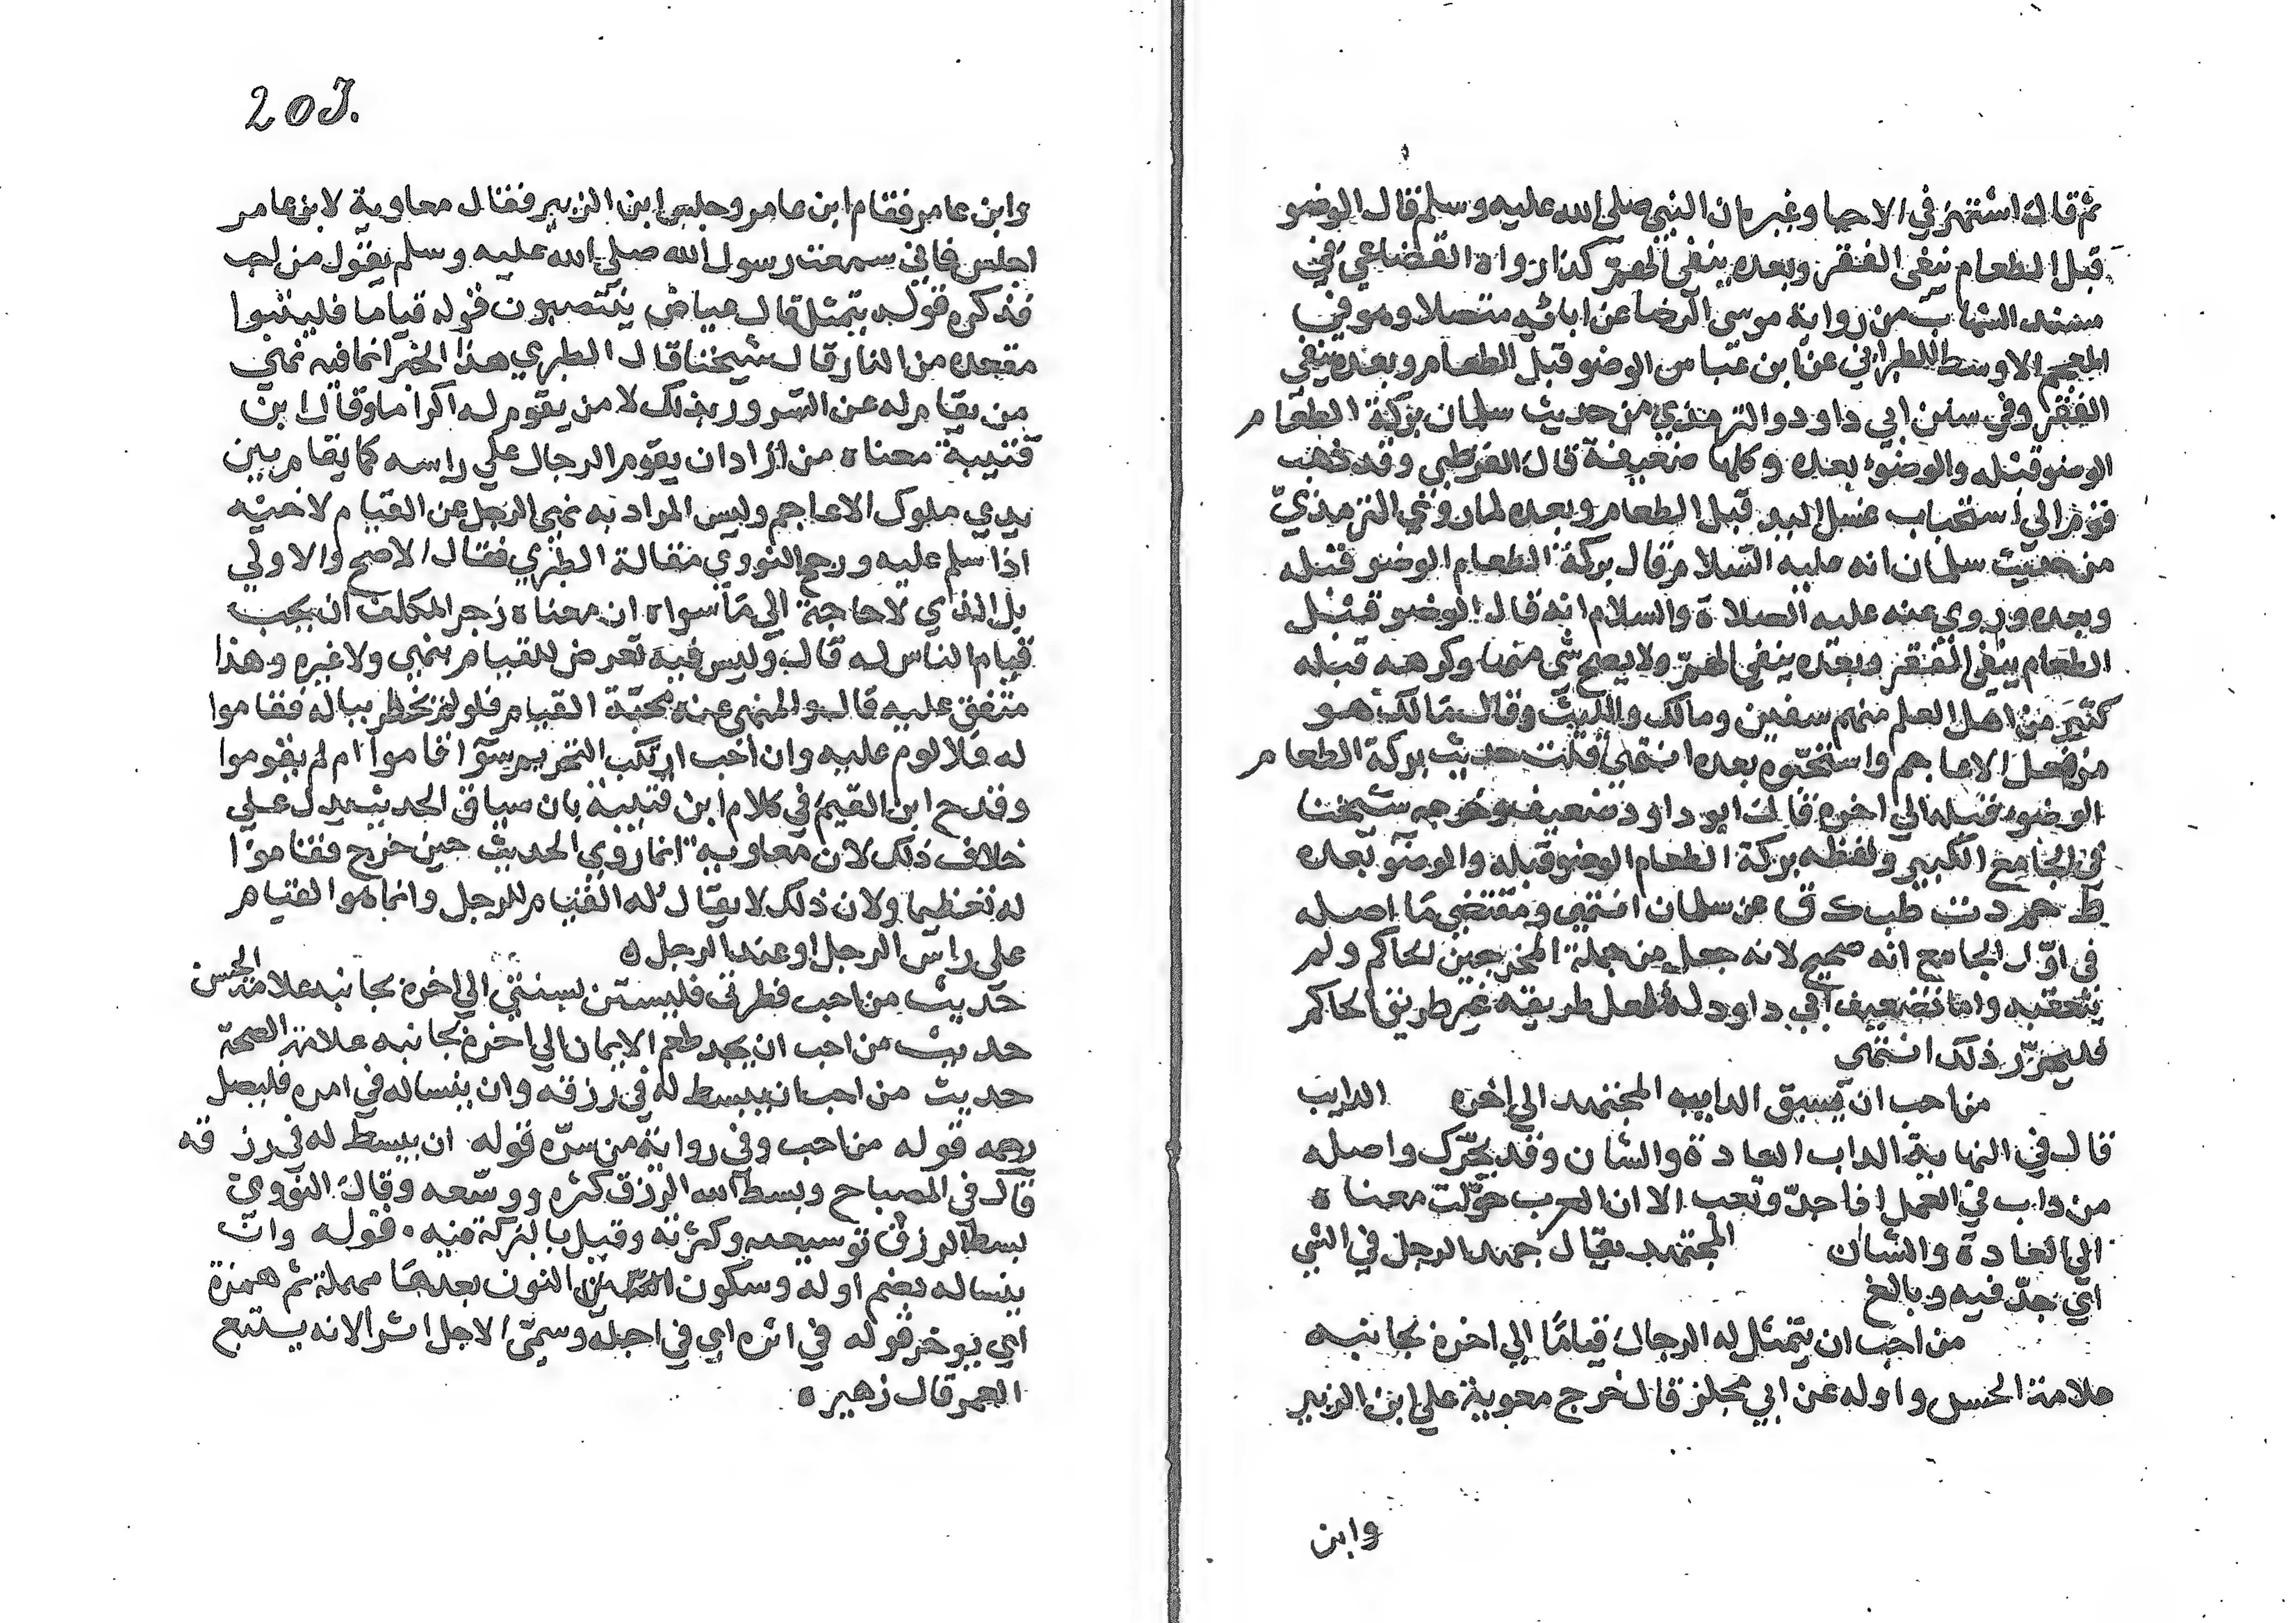 ثم قال اشتهر في الاحيا وغيره ان النبي صلى الله عليه وسلم قال الوضو
قبل الطعام ينفى الفقر وبعده ينفى اللمم كذا رواه القضاعي في
مسند الشهاب من رواية موسى الرضا عن ابائه متصلا وهو في
المعجم الاوسط للطبراني عن ابن عباس الوضو قبل الطعام وبعده ينفي
الفقر وفي سنن ابي داود والترمذي من حديث سلمان بركة الطعام
الوضو قبله والوضو بعده وكلها ضعيفة قال القرطبي وقد ذهب
قوم الى استحباب غسل اليد قبل الطعام وبعده لما روي الترمذي
من حديث سلمان انه عليه السلام قال بركة الطعام الوضو قبله
وبعده وروى عنه عليه الصلاة والسلام انه قال الوضو قبل
الطعام ينفى الفقر وبعده ينفي اللمم ولا يصح شى منها وكرهه قبله
كثير من اهل العلم منهم سفين ومالك والليث وقال مالك هو
من فعل الاعاجم واستحبوه بعده انتهى قلت حديث بركة الطعام
الوضو قبله الي اخره قال ابو داود ضعيف وخرجه شيخنا
في الجامع الكبير ولفظه بركة الطعام الوضو قبله والوضو بعده
ط حم د ت طب ك ق عن سلمان انتهى ومقتضى ما اصله
في اول الجامع انه صحيح لانه جعل من جملة المخرجين الحاكم ولم
يتعقبه واما تضعيف ابي داود له فلعل طريقه غير طريق الحاكم
فليحرر ذلك انتهى
من احب ان يسبق الدايب المجتهد الي اخره الدايب
قال في النهاية الداب العادة والشان وقد يحرك واصله
من داب في العمل اذا جد وتعب الا ان العرب حولت معناه
الي العادة والشان المجتهد يقال جهد الرجل في الشي
اي جد فيه وبالغ
من احب ان يتمثل له الرجال قياما الي اخره بجانبه
علامة الحسن واوله عن ابي مجلز قال خرج معوية علي ابن الزبير
وابن
203.
وابن عامر فقام ابن عامر وجلس ابن الزبير فقال معاوية لابن عامر
اجلس فاني سمعت رسول الله صلي الله عليه وسلم يقول من احب
فذكره قوله يتمثل قال عياض ينتصبون قوله قياما فليتبوا
مقعده من النار قال شيخنا قال الطبري هذا الخبر انما فيه نهي
من يقام له عن السرور بذلك لا من يقوم له اكراما وقال ابن
قتيبة معناه من اراد ان يقوم الرجال علي راسه كما يقام بين
يدي ملوك الاعاجم وليس المراد به نهى الرجل عن القيام لاخيه
اذا سلم عليه ورجح النووي مقالة الطبري فقال الاصح والاولي
بل الذي لا حاجة الي ما سواه ان معناه زجر المكلف ان يحب
قيام الناس له قال وليس فيه تعرض للقيام بنهي ولا غيره وهذا
متفق عليه قال والمنهى عنه محبة القيام فلو لم يخطر بباله فقاموا
له فلا لوم عليه وان احب ارتكب التحريم سوا قاموا ام لم يقوموا
وقدح ابن القيم في كلام ابن قتيبة بان سياق الحديث يدل على
خلاف ذلك لان معاوية انما روي الحديث حين خرج فقاموا
له تعظيما ولان ذلك لا يقال له القيام للرجل وانما هو القيام
على راس الرجل او عند الرجل ه
حديث من احب فطرتي فليستن بسنتي الي اخره بجانبه علامة الحسن
حديث من احب ان يجد طعم الايمان الي اخره بجانبه علامة الصحة
حديث من احب ان يبسط له في رزقه وان ينسا له في امره فليصل
رحمه قوله من احب وفي رواية من سره قوله ان يبسط له في رزقه
قال في المصباح وبسط الله الرزق كثره ووسعه وقال النووي
بسط الرزق توسيعه وكثرته وقيل بالبركة فيه . قوله وان
ينسا له بضم اوله وسكون النون بعدها مهملة ثم همزة
اي يوخر قوله في اثره اي في اجله وسمي الاجل اثرا لانه يستتبع
العمر قال زهير ه